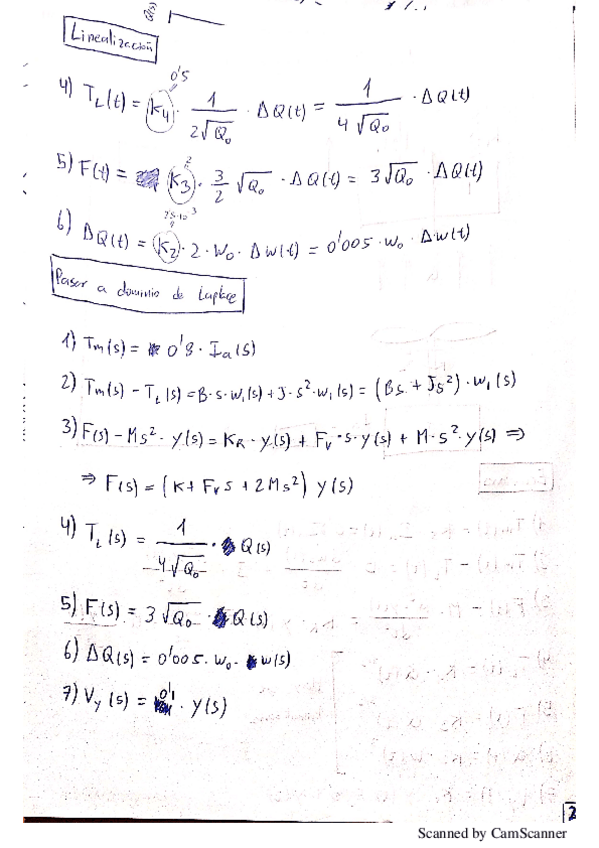 Q(s)
Linealización
0'5
4) T_L(t) = K4 · 1/(2√Q₀) · ΔQ(t) = 1/(4√Q₀) · ΔQ(t)
2
5) F(t) = K3 · 3/2 √Q₀ · ΔQ(t) = 3√Q₀ · ΔQ(t)
6) ΔQ(t) = K2 · 2 · W₀ · ΔW(t) = 0'005 · W₀ · ΔW(t)
Pasar a dominio de Laplace
1) Tm(s) = 0'8 · Ia(s)
2) Tm(s) - T_L(s) = B·s·W₁(s) + J·s²·W₁(s) = (Bs + Js²)·W₁(s)
3) F(s) - Ms²·y(s) = K_R · y(s) + F_V·s·y(s) + M·s²·y(s) ⇒
⇒ F(s) = (K + F_V s + 2Ms²) y(s)
4) T_L(s) = 1/(4√Q₀) · Q(s)
5) F(s) = 3√Q₀ · Q(s)
6) ΔQ(s) = 0'005 · W₀ · W(s)
7) V_y(s) = 0'1 · y(s)
2
Scanned by CamScanner